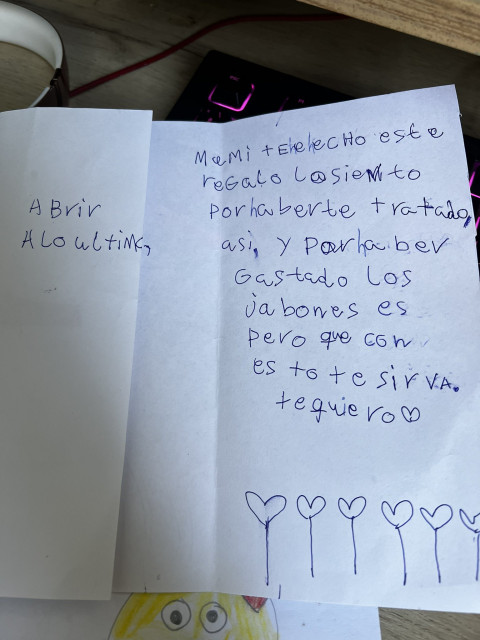 ABrir
ALO ultimo,
Mami tEheheCHO este
reGalo Losiento
Porhaberte tratado,
asi, y Porhaber
Gastado Los
jabones es
Pero que con
es to te sirVA.
te quiero♡